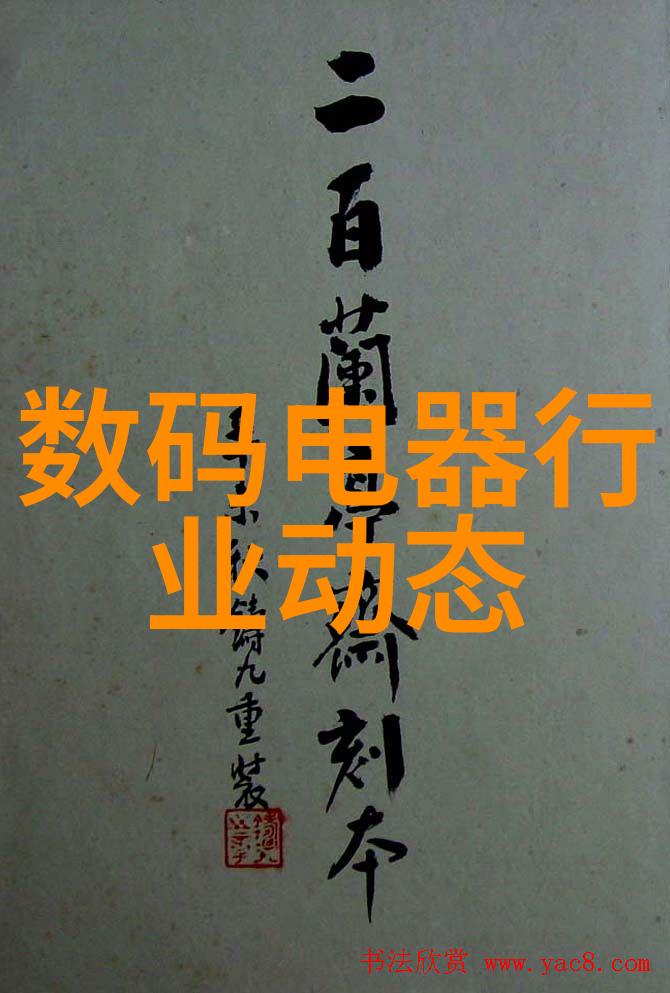 二百蘭亭齋刻本
九重裝
数码电器行
业动态
书法欣赏 www.yac8.com